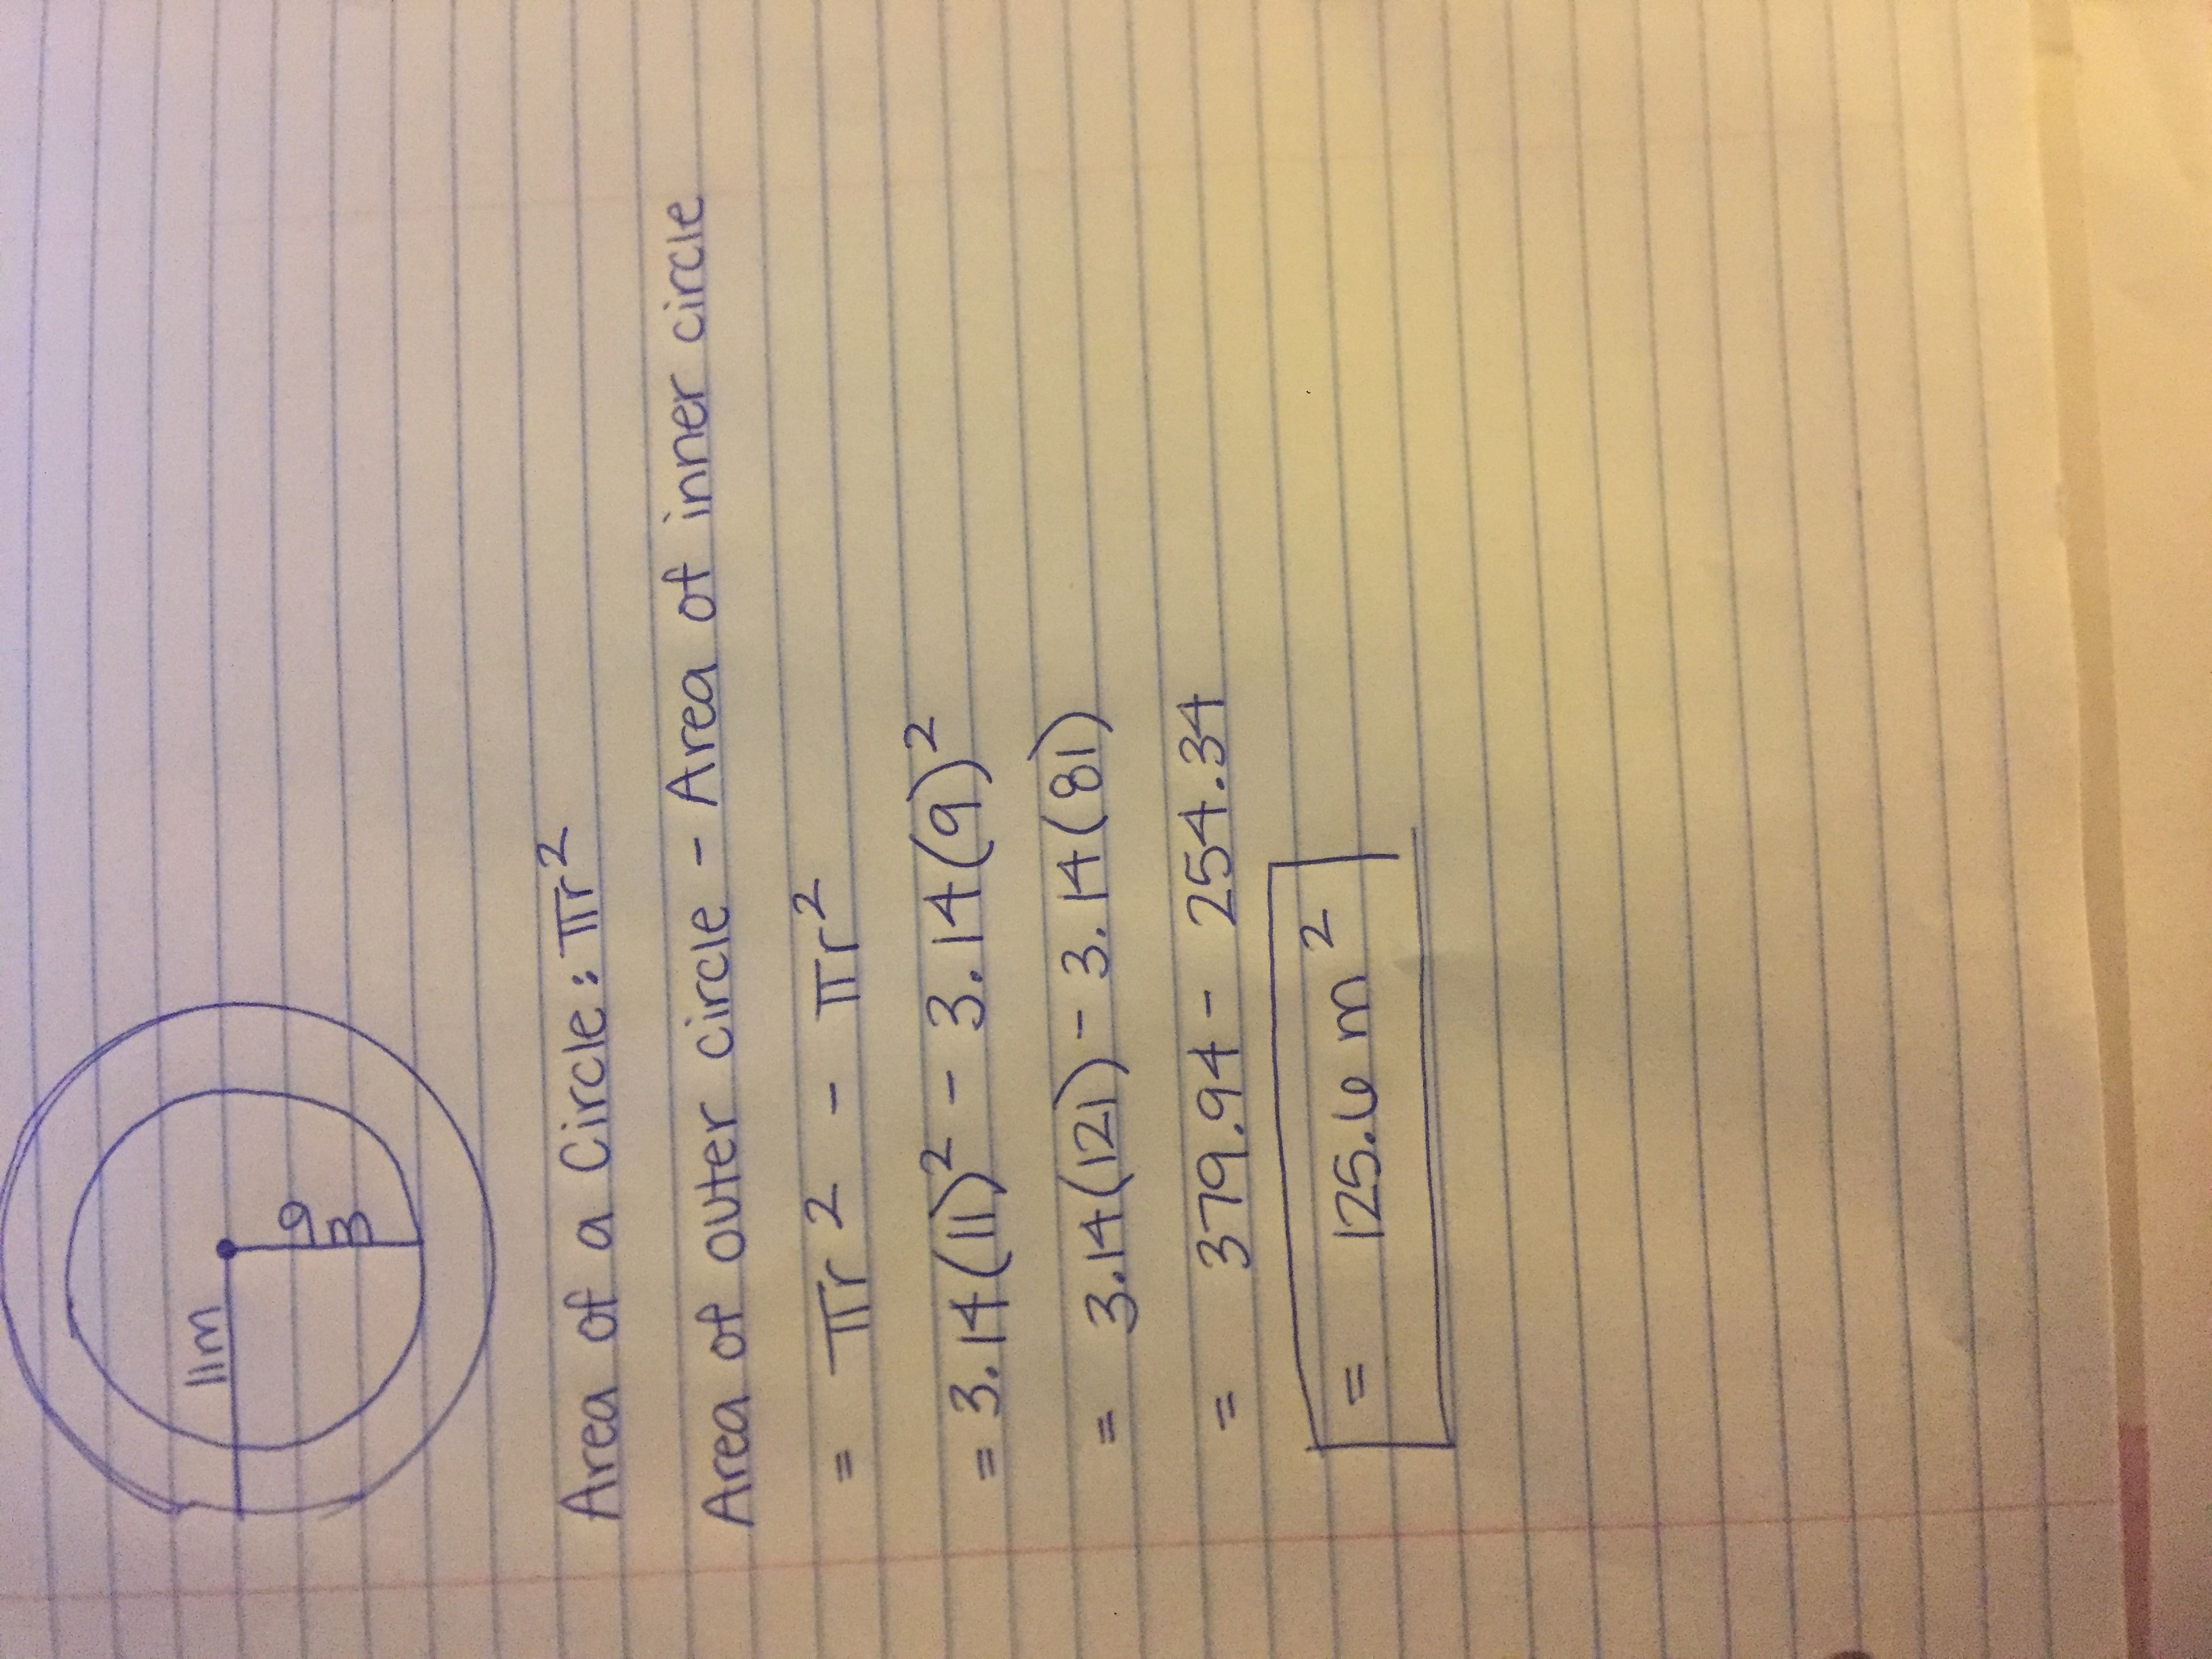 11m
9
m
Area of a Circle: πr²
Area of outer circle - Area of inner circle
= πr² - πr²
= 3.14(11)² - 3.14(9)²
= 3.14(121) - 3.14(81)
= 379.94 - 254.34
= 125.6 m²